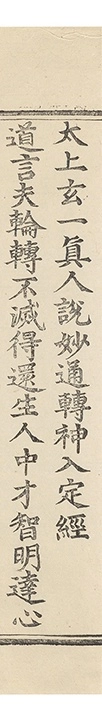 太上玄一眞人說妙通轉神入定經
道言夫輪轉不滅得還生人中才智明達心